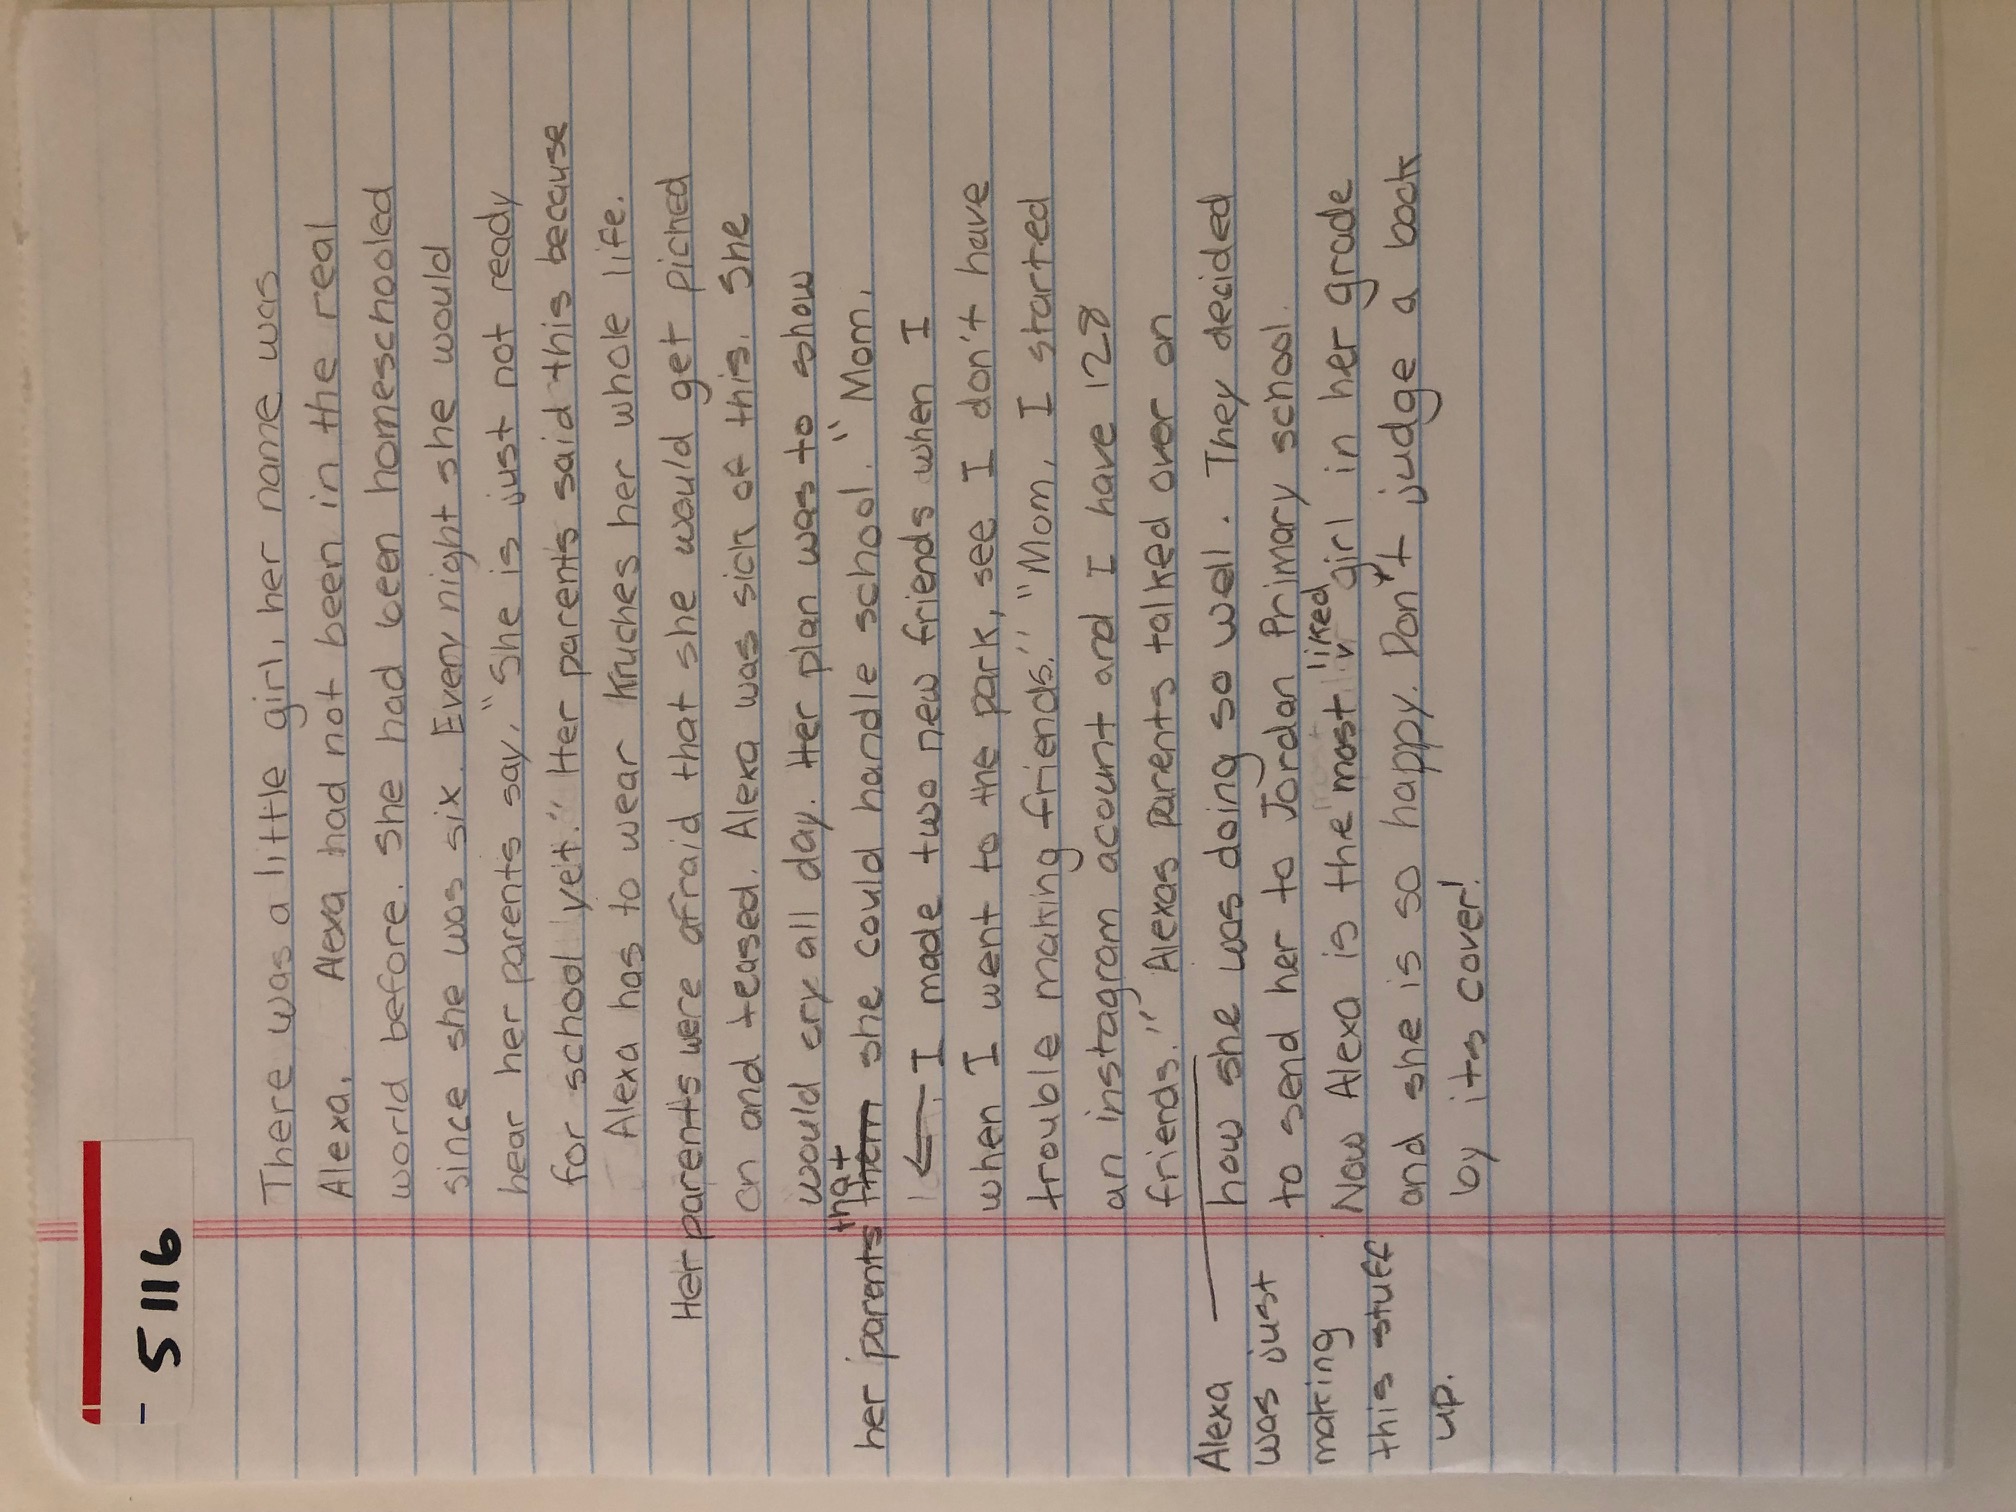 5116
There was a little girl, her name was
Alexa. Alexa had not been in the real
world before. She had been homeschooled
since she was six. Every night she would
hear her parents say, "She is just not ready
for school yet." Her parents said this because
Alexa has to wear kruches her whole life.
Her parents were afraid that she would get picked
on and teased. Alexa was sick of this. She
would cry all day. Her plan was to show
that
her parents them she could handle school. "Mom,
I made two new friends when I
when I went to the park, see I don't have
trouble making friends." "Mom, I started
an instagram acount and I have 128
friends." Alexas parents talked over on
how she was doing so well. They decided
to send her to Jordan Primary school.
liked
Now Alexa is the most girl in her grade
and she is so happy. Don't judge a book
by its cover!
Alexa
was just
making
this stuff
up.